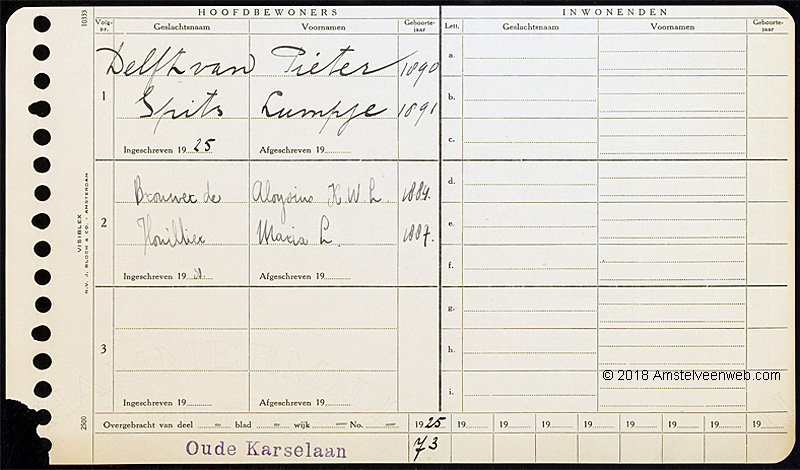 HOOFDBEWONERS INWONENDEN
Volg-nr. Geslachtsnaam Voornamen Geboorte-jaar Lett. Geslachtsnaam Voornamen Geboorte-jaar
10333
1
Delft van Pieter 1890
Spits Lumpje 1891
Ingeschreven 19 25 Afgeschreven 19
2
Brouwer de Aloysius K.W.L. 1884.
Maria L. 1887.
Ingeschreven 19 Afgeschreven 19
3
Ingeschreven 19 Afgeschreven 19
a.
b.
c.
d.
e.
f.
g.
h.
i.
VISIBLEX
N.V. J. BLOCH & CO. - AMSTERDAM
2500
© 2018 Amstelveenweb.com
Overgebracht van deel — blad — wijk — No. — 1925 19 19 19 19 19 19 19
Oude Karselaan 73